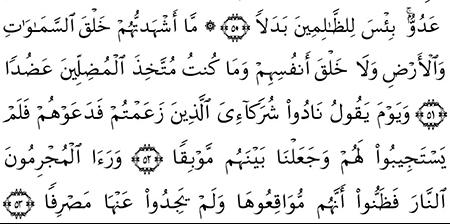 عَدُوٌّۢ بِئْسَ لِلظَّٰلِمِينَ بَدَلًا ۝٥٠ ۞ مَّآ أَشْهَدتُّهُمْ خَلْقَ ٱلسَّمَٰوَٰتِ
وَٱلْأَرْضِ وَلَا خَلْقَ أَنفُسِهِمْ وَمَا كُنتُ مُتَّخِذَ ٱلْمُضِلِّينَ عَضُدًا
۝٥١ وَيَوْمَ يَقُولُ نَادُوا۟ شُرَكَآءِىَ ٱلَّذِينَ زَعَمْتُمْ فَدَعَوْهُمْ فَلَمْ
يَسْتَجِيبُوا۟ لَهُمْ وَجَعَلْنَا بَيْنَهُم مَّوْبِقًا ۝٥٢ وَرَءَا ٱلْمُجْرِمُونَ
ٱلنَّارَ فَظَنُّوٓا۟ أَنَّهُم مُّوَاقِعُوهَا وَلَمْ يَجِدُوا۟ عَنْهَا مَصْرِفًا ۝٥٣